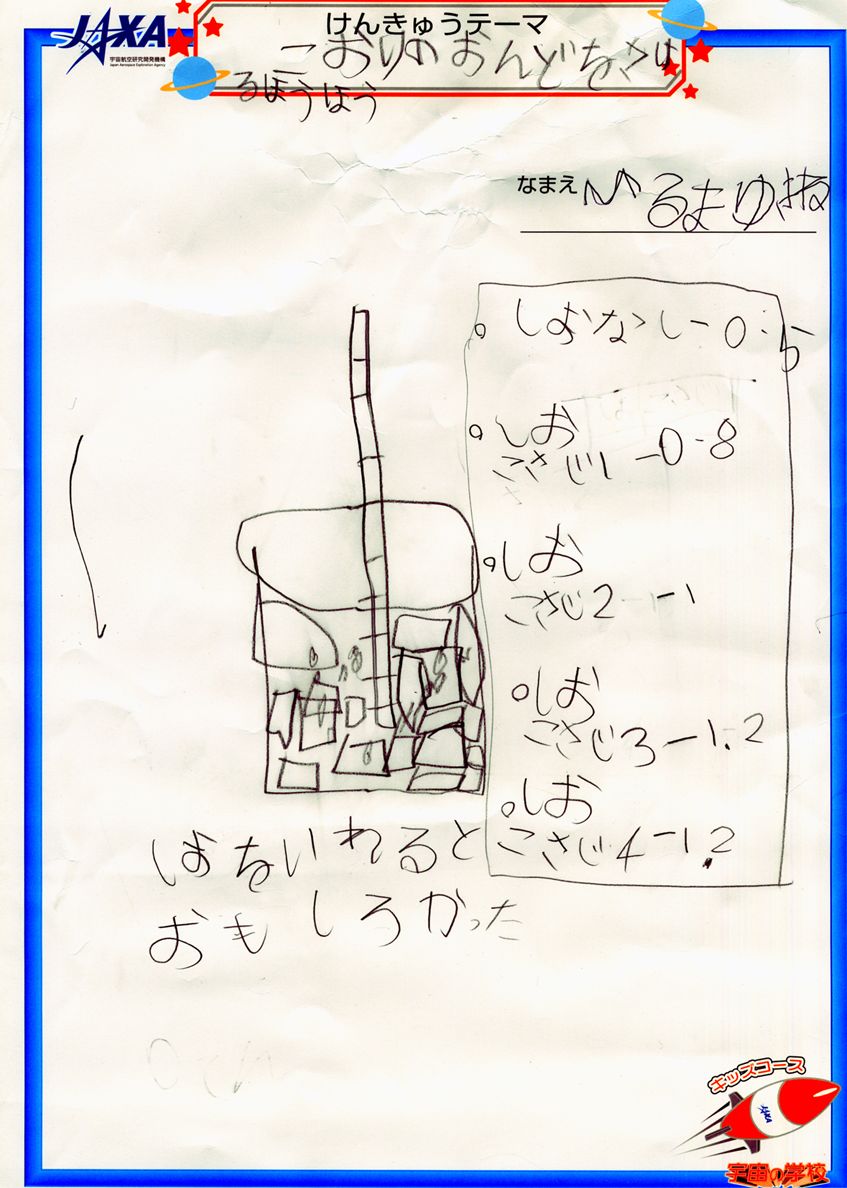 JAXA
宇宙航空研究開発機構
Japan Aerospace Exploration Agency
けんきゅうテーマ
こおりのおんどをさげ
るほうほう
なまえ
しおなし-0.5
しお
こさじ1-0.8
しお
こさじ2-1
しお
こさじ3-1.2
しお
こさじ4-1.2
しおをいれると
おもしろかった
キッズコース
JAXA
宇宙の学校